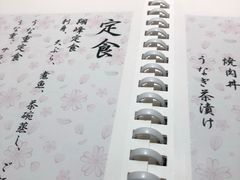 焼肉丼
うなぎ茶漬け
定食
翔峰定食
刺身、天ぷら、
煮魚、茶碗蒸し、
うな重定食